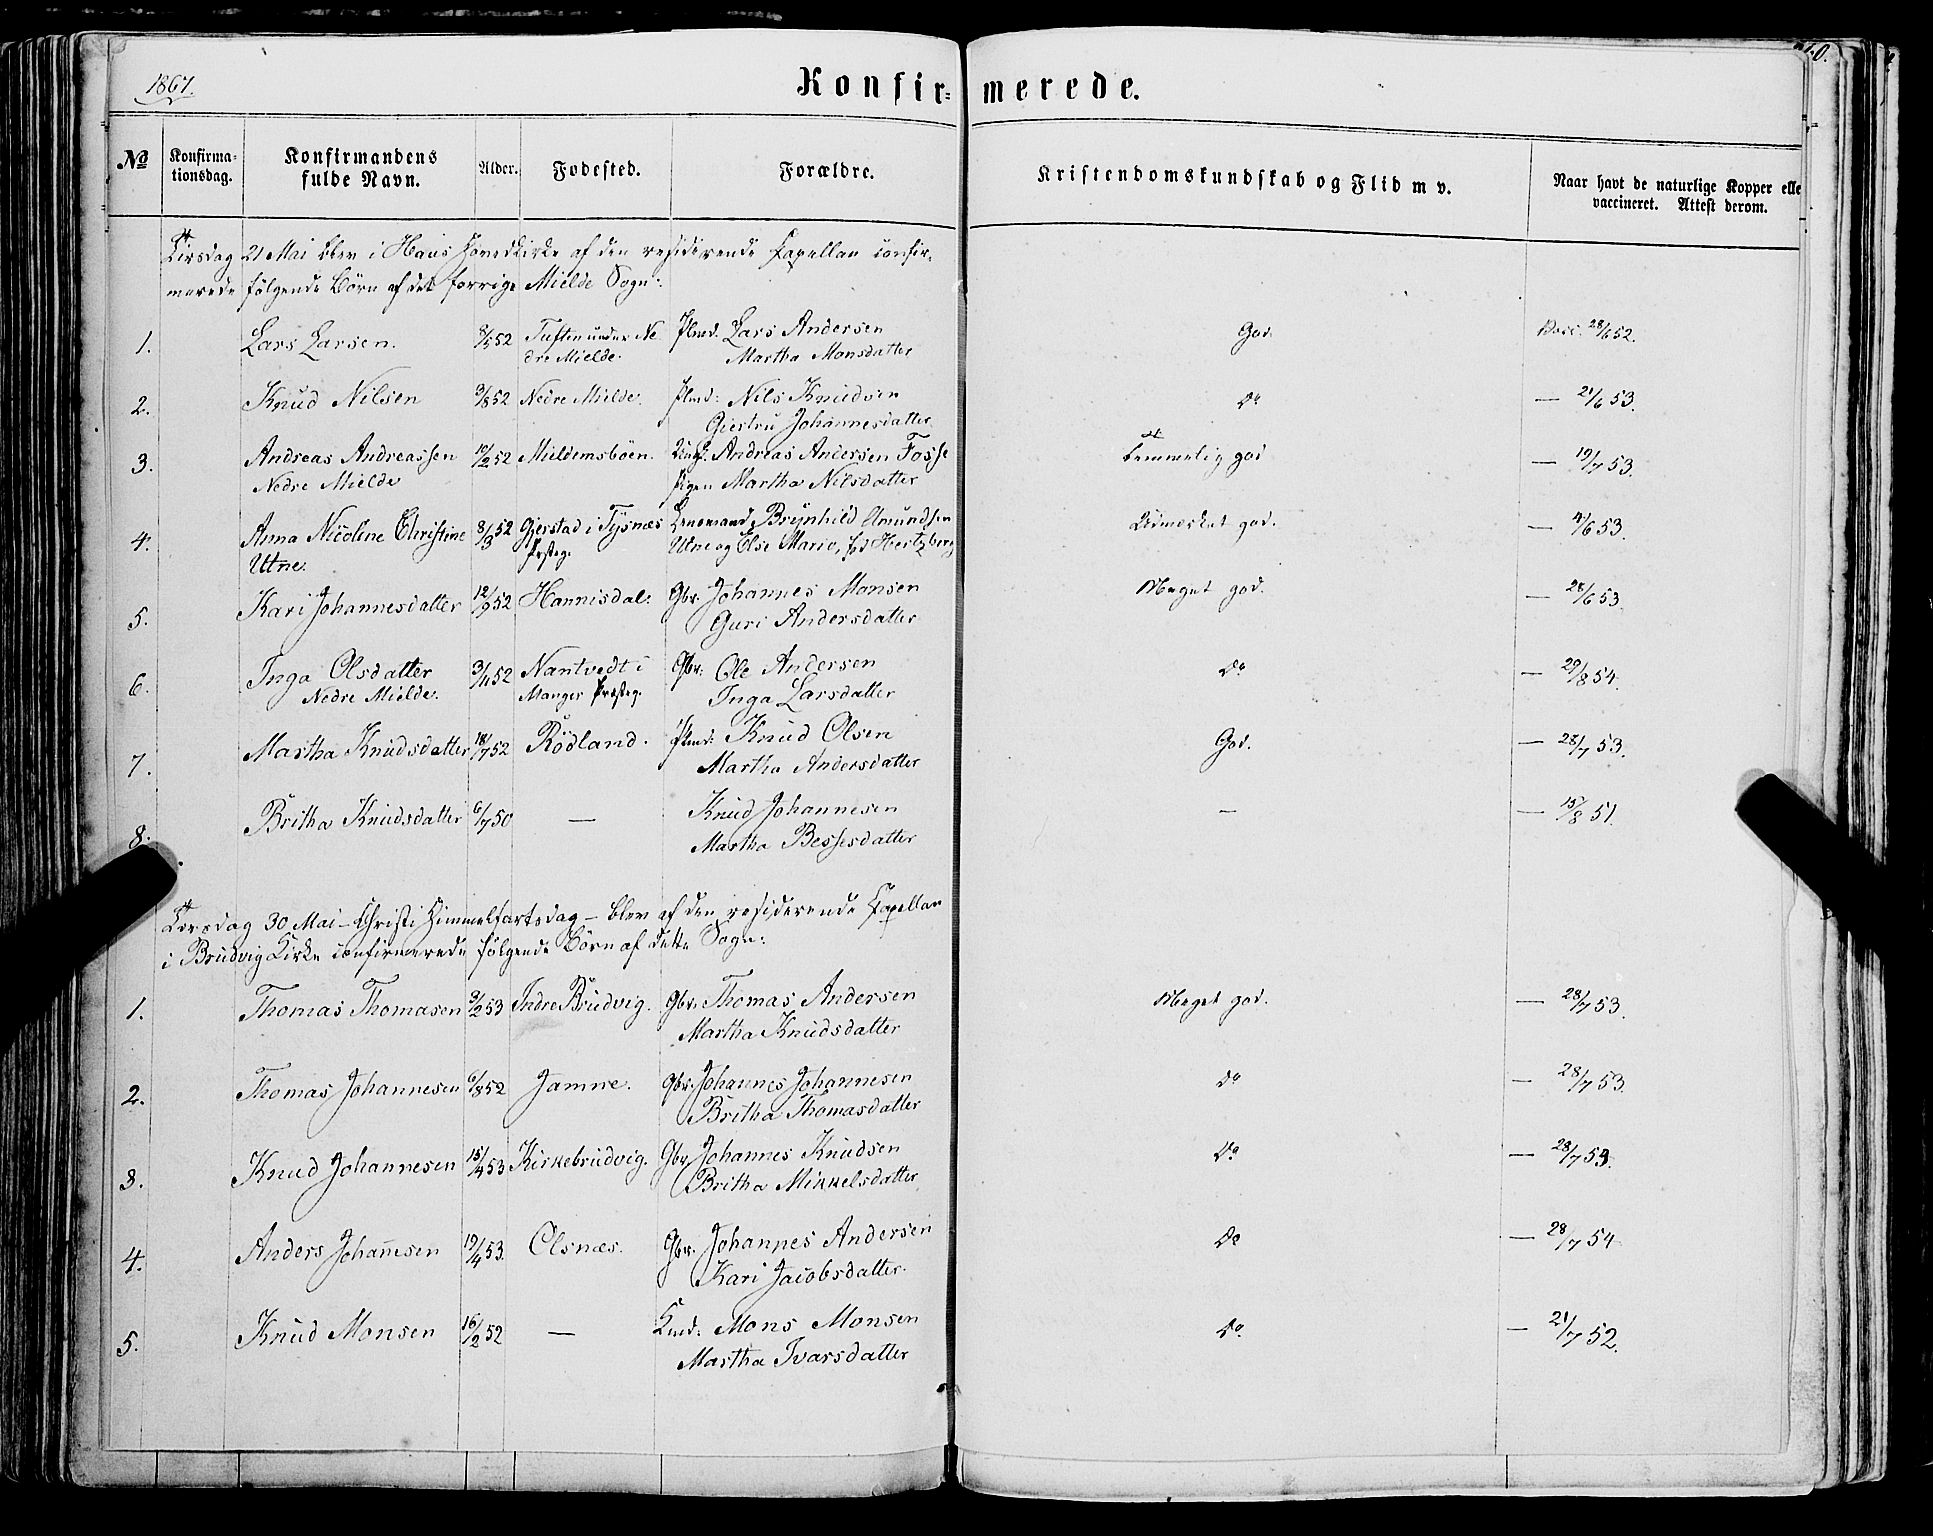 1867.
Konfirmerede.
No
Konfirma-
tionsdag.
Konfirmandens
fulde Navn.
Alder.
Fodested.
Forældre.
Kristendomskundskab og Flid m v.
Naar havt de naturlige Kopper elle
vaccineret. Attest derom.
Tirsdag 21 Mai blev i Haus Hovedkirke af den residerende Capellan confir-
merede følgende Børn af det forrige Mielde Sogn:
1. Lars Larsen. 8/5 52 Tuften under Ne- Plmd. Lars Andersen God. Vacc. 28/6 52.
dre Mielde. Martha Monsdatter
2. Knud Nilsen 3/8 52 Nedre Mielde. Plmd: Nils Knudsen Do — 21/6 53.
Giertru Johannesdatter
3. Andreas Andreassen 10/2 52 Mieldemsböen. Ungk. Andreas Andersen Fosse Temmelig god — 19/7 53.
Nedre Mielde Pigen Martha Nilsdatter
4. Anna Nicoline Christine 8/3 52 Gjerstad i Tysnæs Lensmand Brynhild Amundsen Udmerket god. — 4/6 53.
Utne. Præsteg. Utne og Else Marie, fød Hertzberg
5. Kari Johannesdatter 12/9 52 Hannisdal. Gbr. Johannes Monsen Meget god. — 28/6 53.
Guri Andersdatter
6. Inga Olsdatter 3/11 52 Nantvedt i Gbr: Ole Andersen Do — 29/8 54.
Nedre Mielde. Manger Præsteg. Inga Larsdatter
7. Martha Knudsdatter 18/7 52 Rödland. Plmd: Knud Olsen God. — 28/7 53.
Martha Andersdatter
8. Britha Knudsdatter 6/7 50 — Knud Johannesen — — 15/8 51.
Martha Bessesdatter
Torsdag 30 Mai - Christi Himmelfartsdag - blev af den residerende Capellan
i Brudvig Kirke confirmerede følgende Børn af dette Sogn:
1. Thomas Thomasen 3/2 53 Indre Brudvig. Gbr: Thomas Andersen Meget god. — 28/7 53.
Martha Knudsdatter
2. Thomas Johannesen 6/8 52 Jamne. Gbr: Johannes Johannesen Do — 28/7 53.
Britha Thomasdatter
3. Knud Johannesen 15/4 53 Kirkebrudvig. Gbr Johannes Knudsen Do — 28/7 53.
Britha Mikkelsdatter
4. Anders Johan̄esen 19/4 53. Olsnæs. Gbr. Johannes Andersen Do — 28/7 54
Kari Jacobsdatter.
5. Knud Monsen 16/2 52 — Hmd: Mons Monsen Do — 21/7 52.
Martha Ivarsdatter